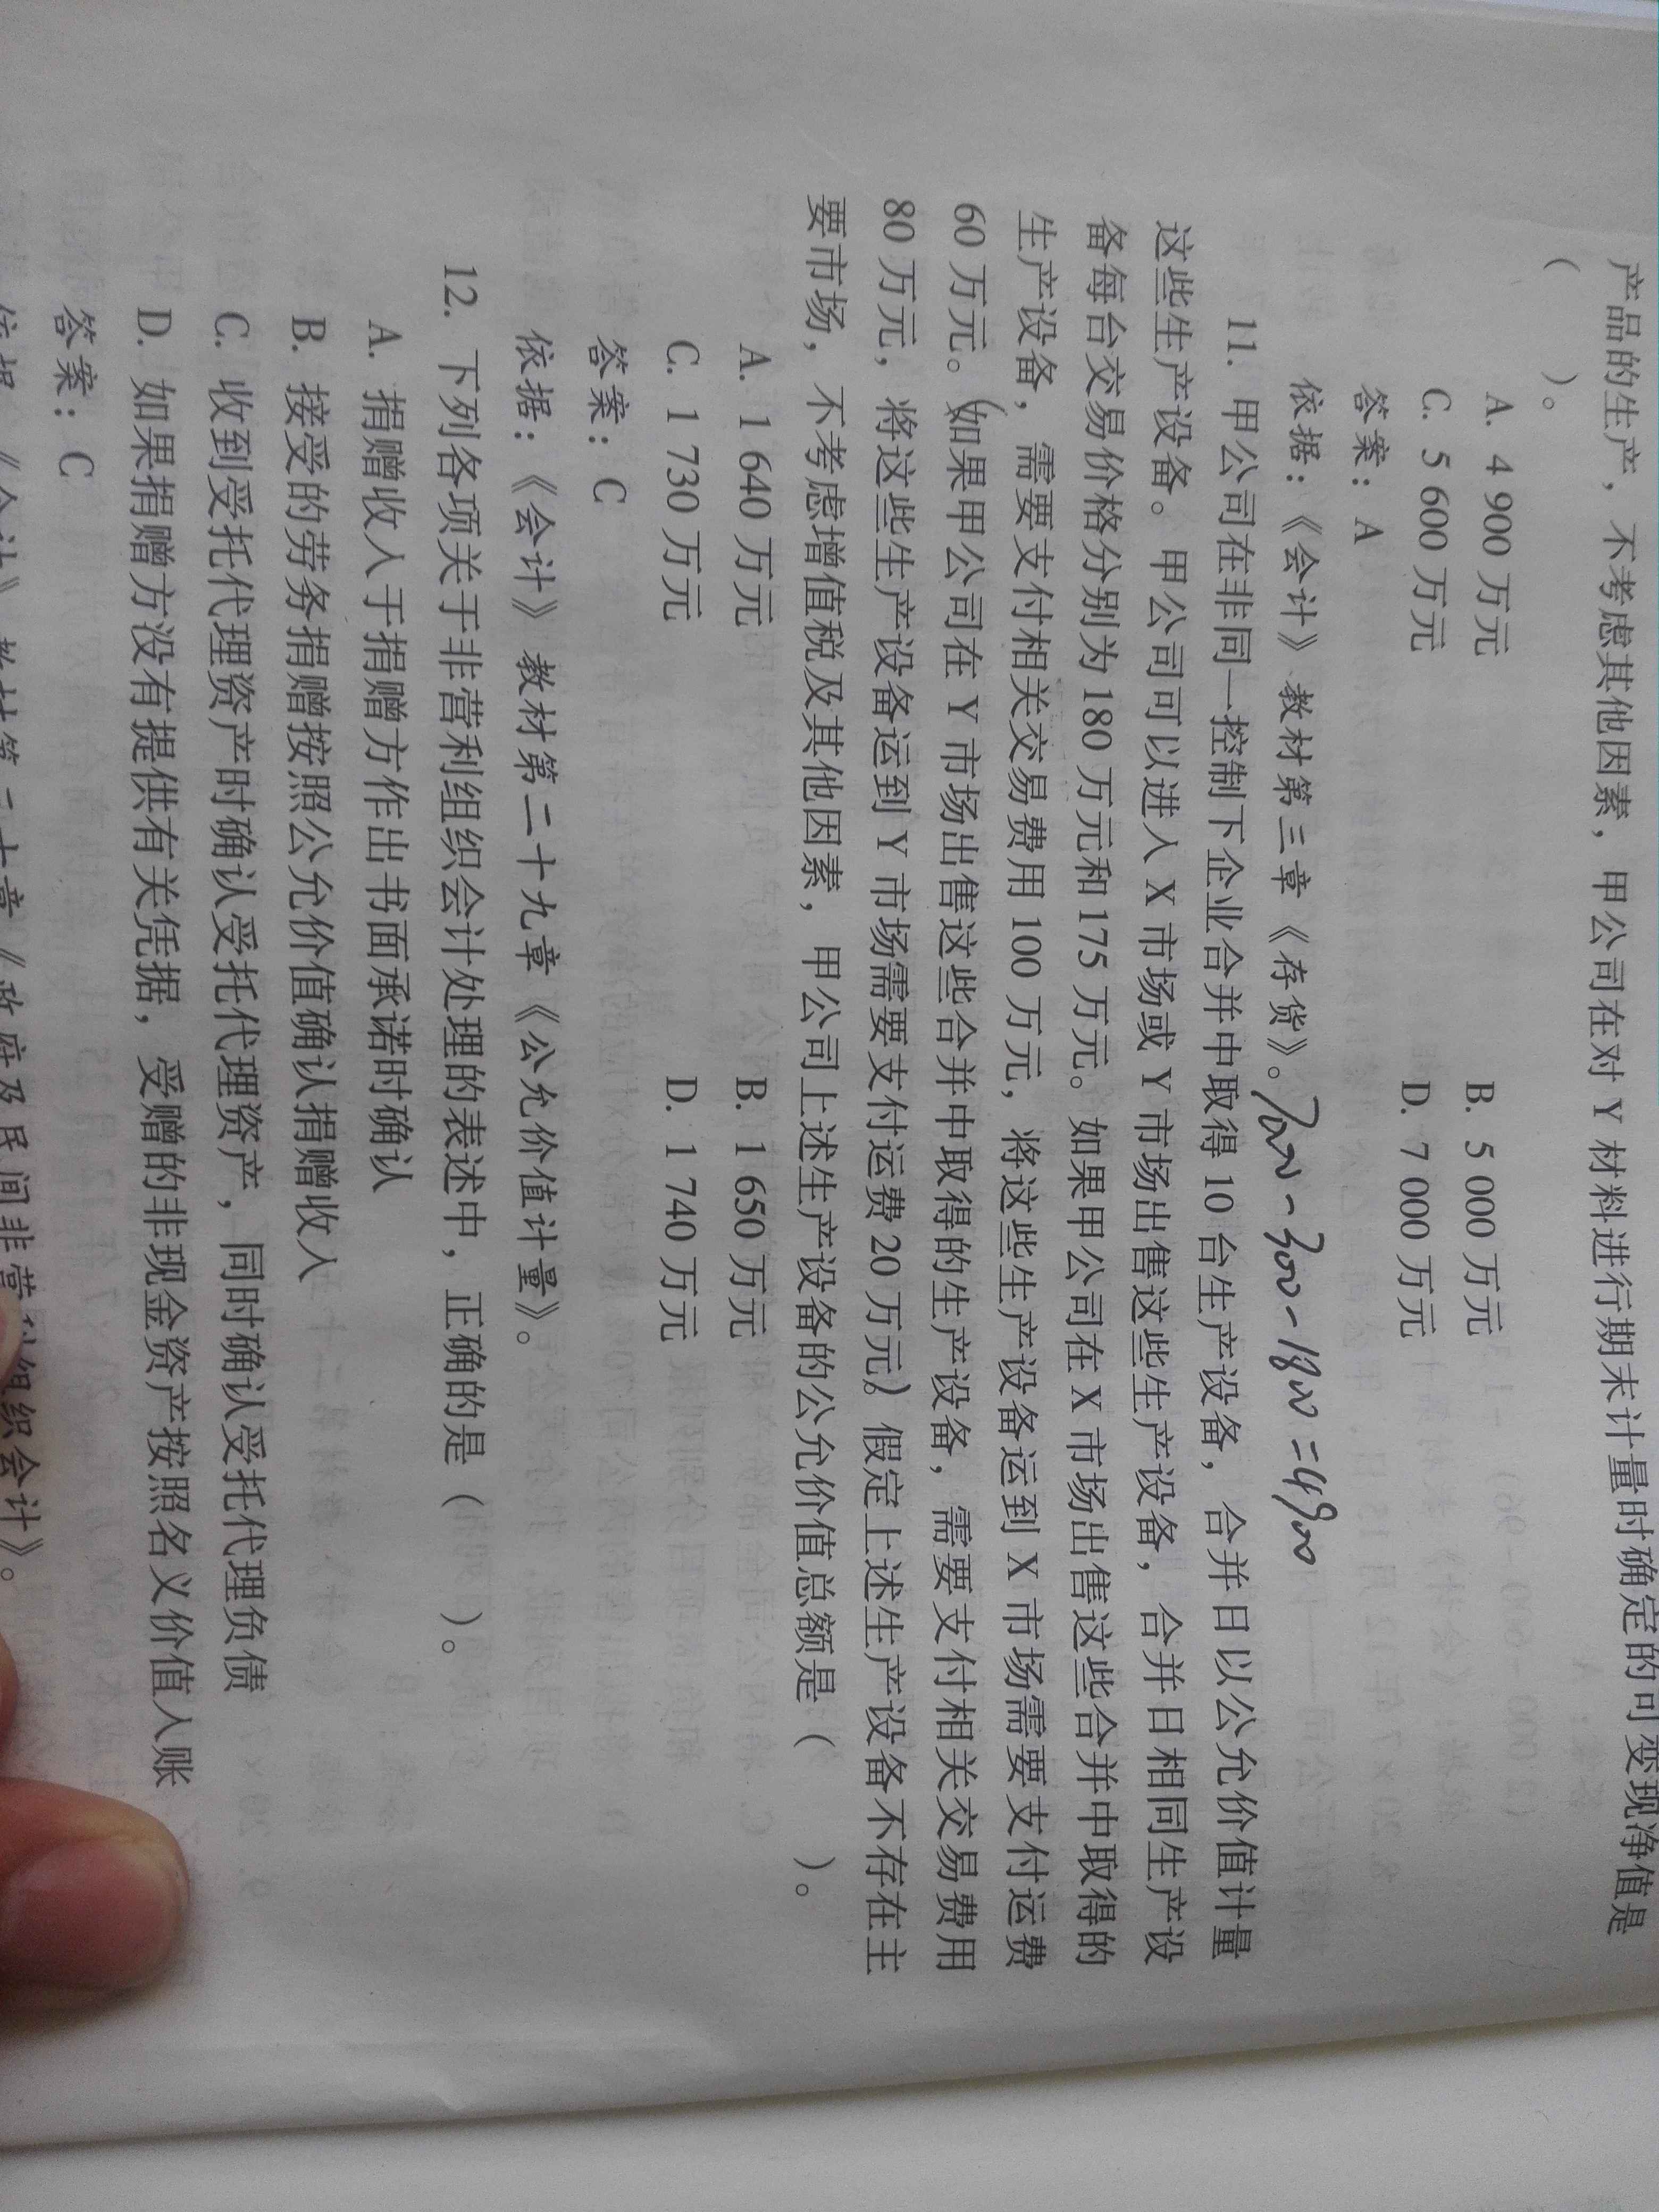 产品的生产，不考虑其他因素，甲公司在对 Y 材料进行期末计量时确定的可变现净值是
（ ）。
A. 4 900 万元 B. 5 000 万元
C. 5 600 万元 D. 7 000 万元
答案：A
依据：《会计》教材第三章《存货》。7200-300-1800=4900
11. 甲公司在非同一控制下企业合并中取得 10 台生产设备，合并日以公允价值计量
这些生产设备。甲公司可以进入 X 市场或 Y 市场出售这些生产设备，合并日相同生产设
备每台交易价格分别为 180 万元和 175 万元。如果甲公司在 X 市场出售这些合并中取得的
生产设备，需要支付相关交易费用 100 万元，将这些生产设备运到 X 市场需要支付运费
60 万元。（如果甲公司在 Y 市场出售这些合并中取得的生产设备，需要支付相关交易费用
80 万元，将这些生产设备运到 Y 市场需要支付运费 20 万元）。假定上述生产设备不存在主
要市场，不考虑增值税及其他因素，甲公司上述生产设备的公允价值总额是（ ）。
A. 1 640 万元 B. 1 650 万元
C. 1 730 万元 D. 1 740 万元
答案：C
依据：《会计》教材第二十九章《公允价值计量》。
12. 下列各项关于非营利组织会计处理的表述中，正确的是（ ）。
A. 捐赠收入于捐赠方作出书面承诺时确认
B. 接受的劳务捐赠按照公允价值确认捐赠收入
C. 收到受托代理资产时确认受托代理资产，同时确认受托代理负债
D. 如果捐赠方没有提供有关凭据，受赠的非现金资产按照名义价值入账
答案：C
依据：《会计》教材第三十章《政府及民间非营利组织会计》。